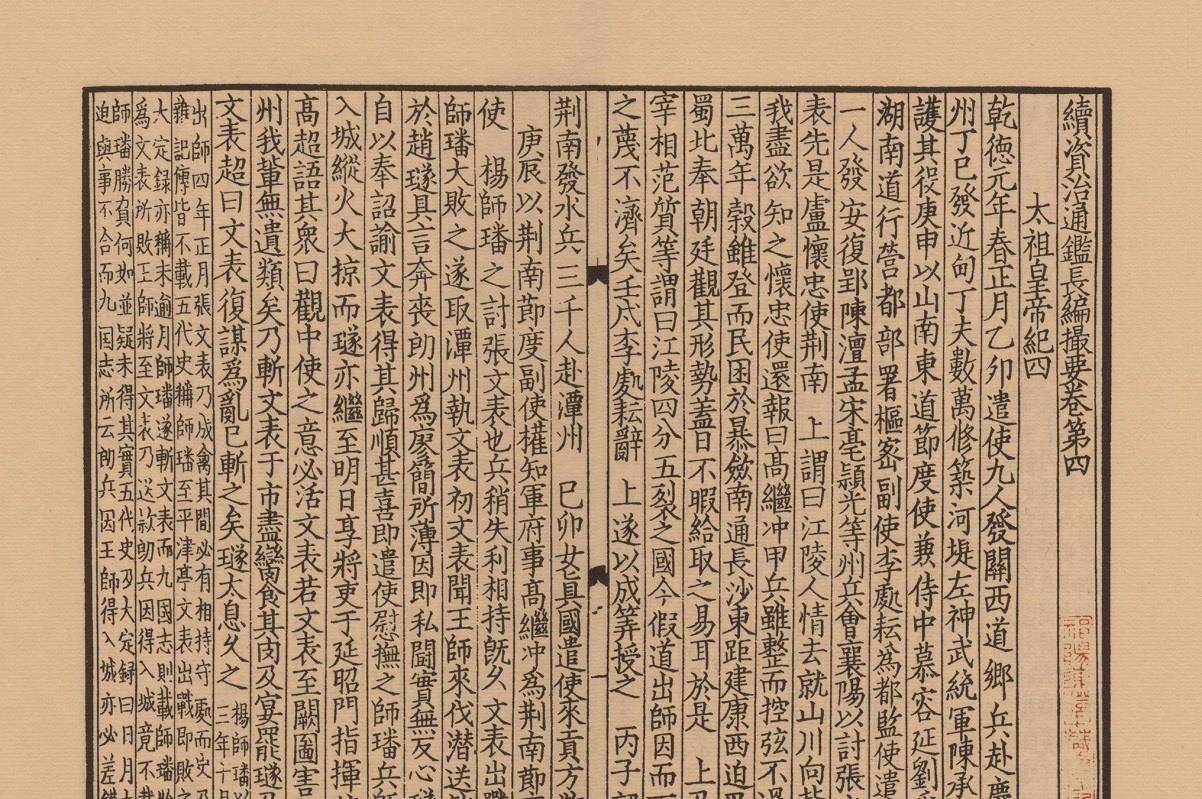 續資治通鑑長編撮要卷第四
太祖皇帝紀四
乾德元年春正月乙卯遣使九人發關西道鄉兵赴慶
州丁巳發近甸丁夫數萬修築河堤左神武統軍陳承
護其役庚申以山南東道節度使兼侍中慕容延劉爲
湖南道行營都部署樞密副使李處耘爲都監使遣
一人發安復郢陳澶孟宋亳潁光等州兵會襄陽以討張
表先是盧懷忠使荆南 上謂曰江陵人情去就山川向背
我盡欲知之懷忠使還報曰高繼冲甲兵雖整而控弦不過
三萬年穀雖登而民困於暴斂南通長沙東距建康西迫巴
蜀北奉朝廷觀其形勢蓋日不暇給取之易耳於是 上
宰相范質等謂曰江陵四分五裂之國今假道出師因而
之蔑不濟矣壬戌李處耘辭 上遂以成筭授之 丙子詔
荆南發水兵三千人赴潭州 己卯女真國遣使來貢方物
庚辰以荆南節度副使權知軍府事高繼冲爲荆南節
使 楊師璠之討張文表也兵稍失利相持既久文表出戰
師璠大敗之遂取潭州執文表初文表聞王師來伐潛送
於趙璲具言奔喪朗州爲廖簡所薄因即私鬬實無反心璲
自以奉詔諭文表得其歸順甚喜即遣使慰撫之師璠兵
入城縱火大掠而璲亦繼至明日享將吏于延昭門指揮
高超語其衆曰觀中使之意必活文表若文表至闕圖害
州我輩無遺類矣乃斬文表于市盡臠食其肉及宴罷璲
文表超曰文表復謀爲亂已斬之矣璲太息久之 楊師璠
三年十月
出師四年正月張文表乃成禽其間必有相持守處而史
雜記傳皆不載五代史稱師璠至平津亭文表出戰即敗之
大定錄亦稱未逾月師璠遂斬文表而九國志則載師璠
爲文表所敗王師將至文表乃送款朗兵因得入城竟不
師璠勝負何如並疑未得其實五代史及大定錄曰月
迫與事不合而九國志所云朗兵因王師得入城亦必差錯